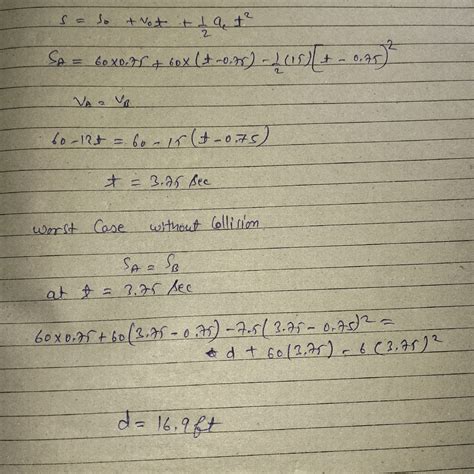 s = s₀ + v₀t + 1/2 a_c t²
S_A = 60×0.75 + 60×(t-0.75) - 1/2(15)[t - 0.75]²
V_A = V_B
60-12t = 60-15(t-0.75)
t = 3.75 sec
worst Case without Collision
S_A = S_B
at t = 3.75 sec
60×0.75+60(3.75-0.75)-7.5(3.75-0.75)² =
d + 60(3.75) - 6(3.75)²
d = 16.9ft